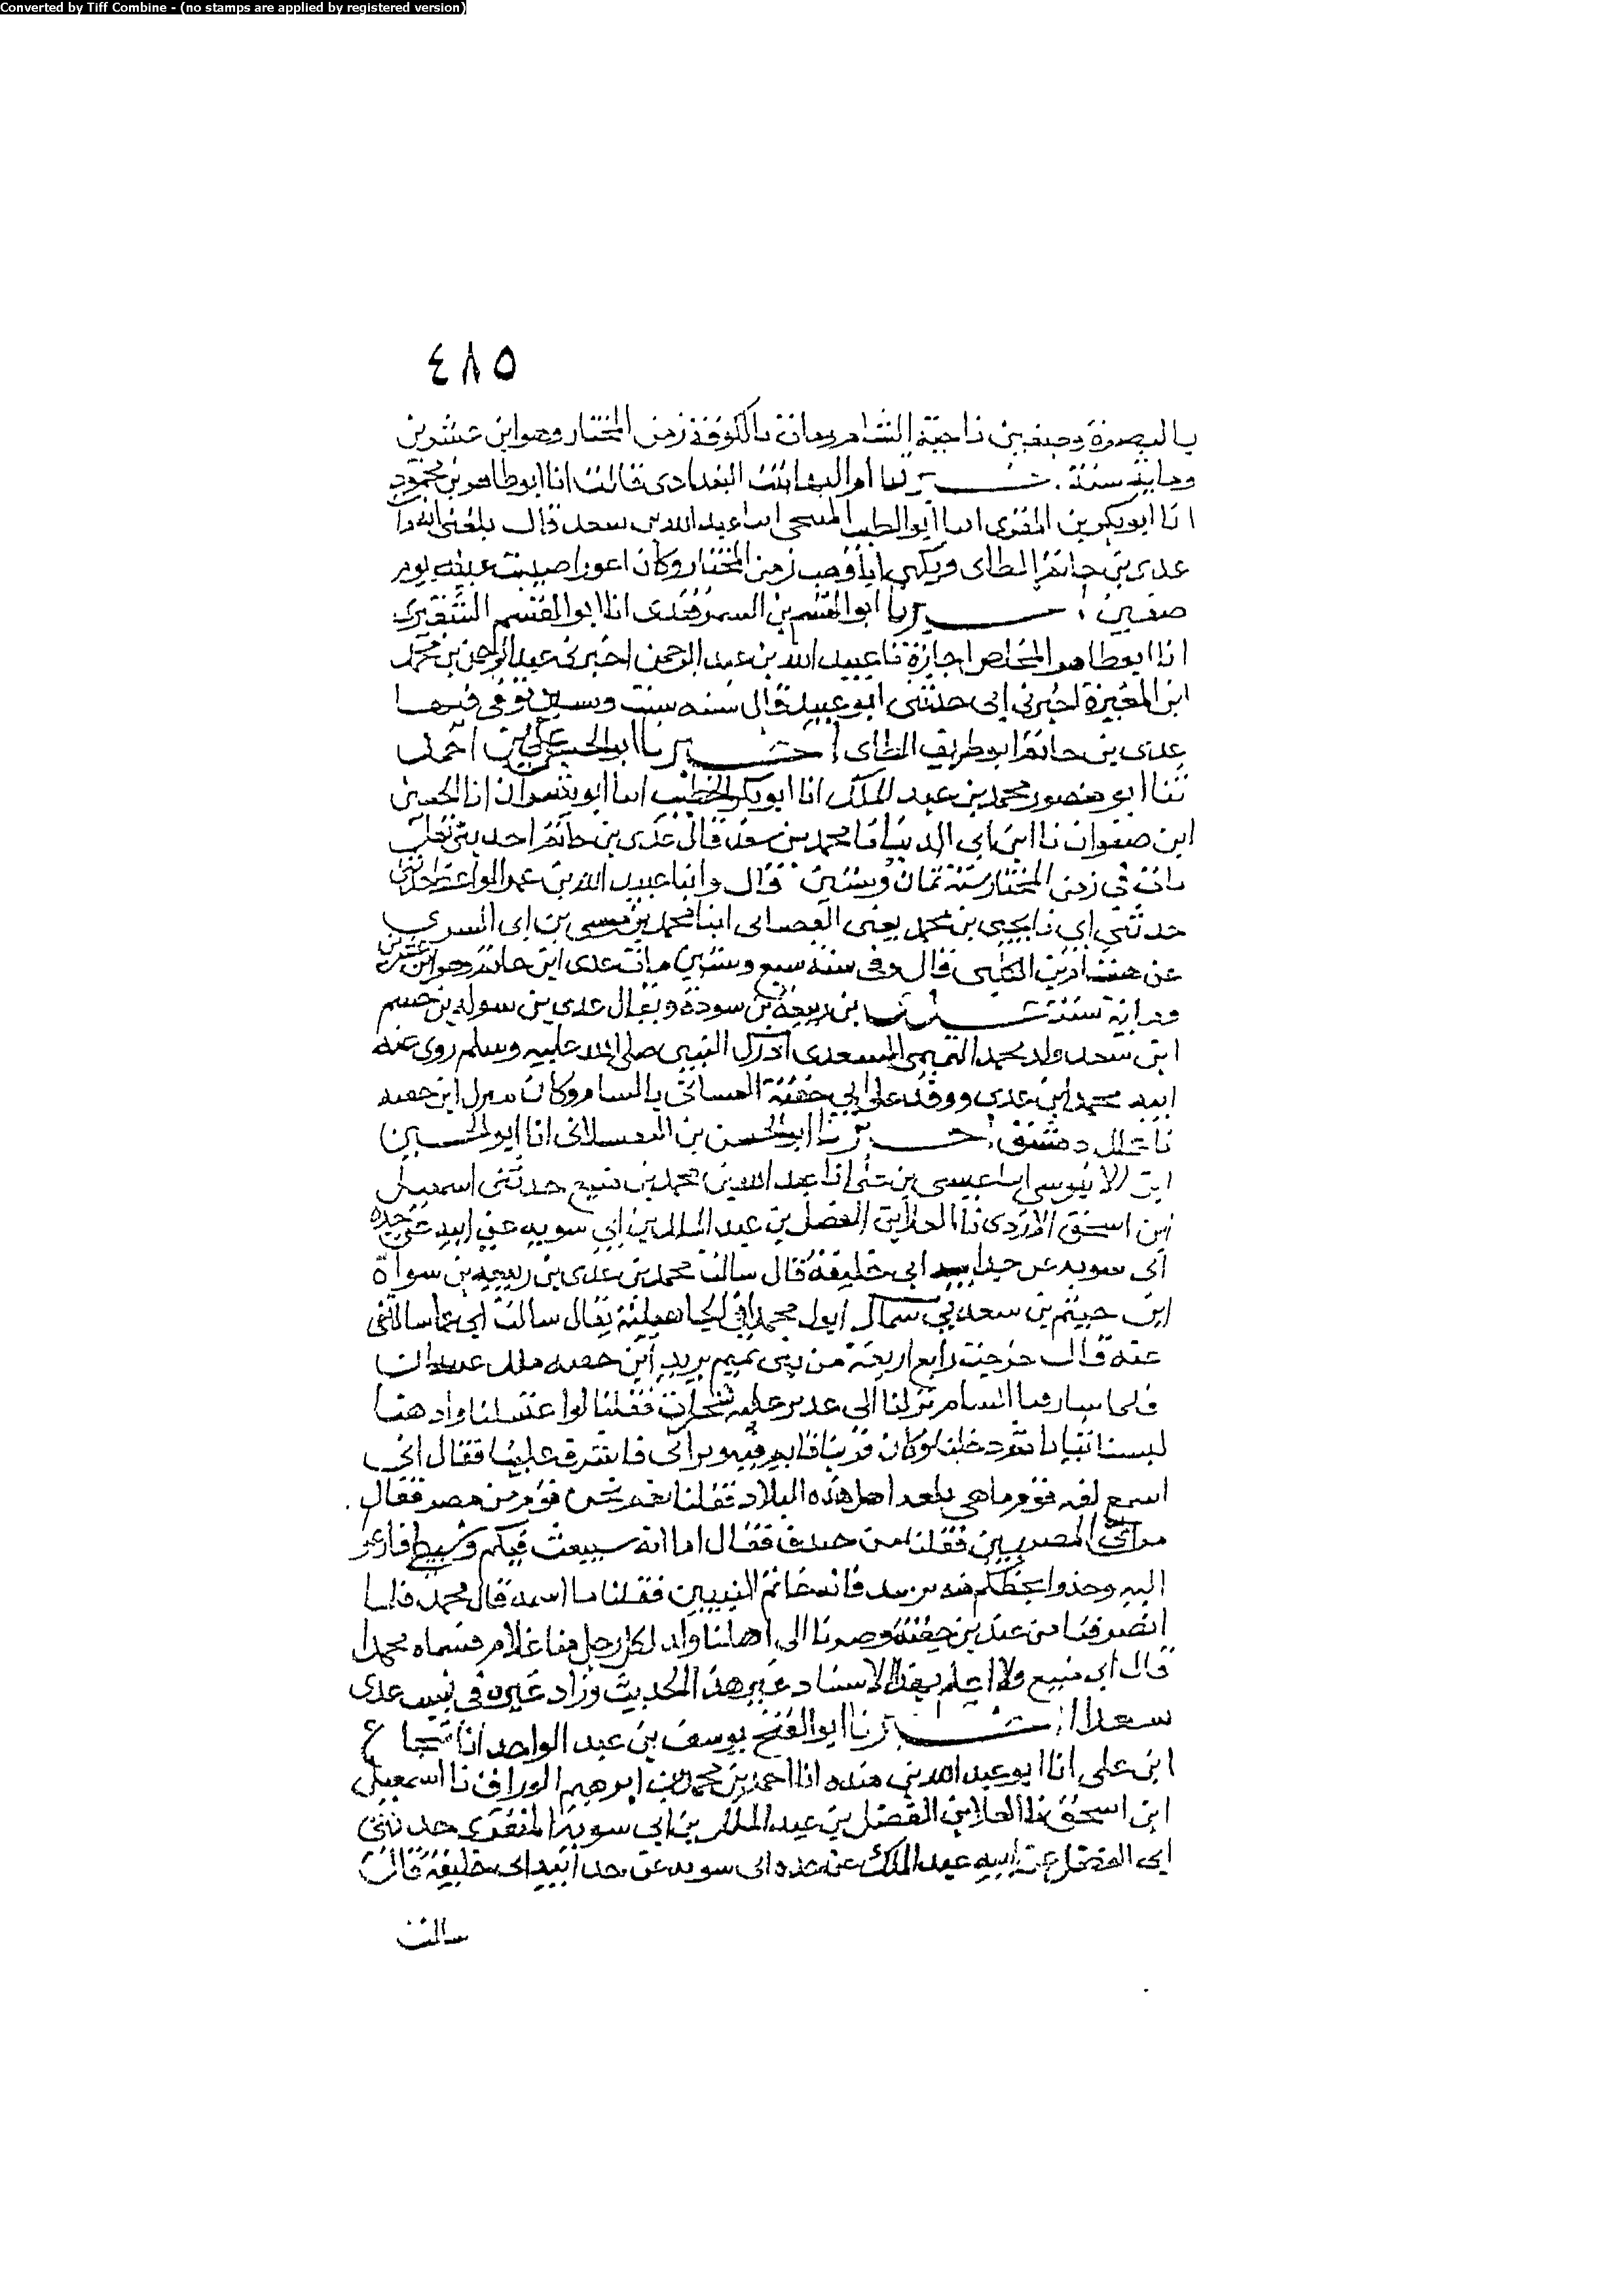 Converted by Tiff Combine - (no stamps are applied by registered version)
٤٨٥
بالبصرة وصفين ناحية الشام ومات بالكوفة زمن المختار وهو ابن عشرين
ومايه سنة أم البها بنت البغدادي قالت انا ابو طاهر بن محمود
انا ابو بكر بن المقري انا ابو الطيب المنبجي انا عبد الله بن سعد قال بلغني انه
عدي بن حاتم الطاي ويكني ابا زمن المختار وكان اعور اصيبت عينه يوم
صفين ابو القسم بن السمرقندي انا ابو القسم
انا ابو طاهر المخلص اجازة نا عبيد الله بن عبد الرحمن اخبرني عبد الرحمن بن محمد
ابن المغيرة اخبرني ابي حدثني ابو عبيد قال سنه ست وستين توفي فيها
عدي بن حاتم ابو طريف الطاي اخبرنا ابو الحسن علي بن احمد
ثنا ابو منصور محمد بن عبد الملك انا ابو بكر الخطيب انا ابو بشران انا الحسين
ابن صفوان نا ابن ابي الدنيا نا محمد بن سعد قال عدي بن حاتم احد بني ثعل
مات في زمن المختار سنة ثمان وستين قال وانبا عبيد الله بن
حدثني ابي نا يحيي بن محمد يعني القصباني ابنا محمد بن موسي بن ابي السري
عن هشام بن الكلبي قال وفي سنة سبع وستين مات عدي ابن حاتم وهو ابن عشرين
ومائة سنة بن ربيعة بن سودة ويقال عدي بن سواه بن جشم
ابن سعد ولد محمد التميمي السعدي ادرك النبي صلي الله عليه وسلم روي عنه
ابنه محمد ابن عدي ووفد علي ابي جفنة الغساني بالشام وكان منزل ابن جفنه
دمشق اخبرنا ابو الحسن بن ابو الحسين
ابن الابنوسي انا عيسي بن علي انا عبد الله بن محمد بن منيع حدثني اسمعيل
ابن اسحق الازدي نا العلا بن الفضل بن عبد الملك بن ابي سويه عن ابيه عن جده
ابي سويه عن جد ابيه ابي خليفة قال سالت محمد بن عدي بن ربيعه بن سواة
ابن جشم بن سعد محمدا في الجاهلية فقال سالت ابي عما سالتني
عنه فقال خرجت رابع اربعة من بني تميم يريد ابن جفنه ملك غسان
فلما سار فينا الشام نزلنا الي غدير عليه شجرات فقلنا لو اغتسلنا وادهنا
لبسنا ثيابا ثم دخلنا وكان قريبا فاشرف علينا فقال اني
اسمع لغه قوم ما هي بلغه اهل هذه البلاد فقلنا نحن قوم من مضر فقال
من اي المضريين فقلنا من خندف فقال اما انه سيبعث فيكم
اليه وخذوا بحظكم منه فانه خاتم النبيين فقلنا ما اسمه قال محمد فلما
انصرفنا من عند بن جفنة وصرنا الي اهلنا ولد لكل رجل منا غلام فسماه محمدا
قال ابن منيع ولا اعلم بهذا الاسناد غير هذا الحديث وزاد غيره في نسب عدي
سعدا اخبرنا ابو الفتح يوسف بن عبد الواحد انا شجاع
ابن علي انا ابو عبد الله بن منده انا احمد بن محمد بن ابرهيم الوراق نا اسمعيل
ابن اسحق نا العلا بن الفضل بن عبد الملك بن ابي سويه المنقري حدثني
ابي الفضل عن ابيه عبد الملك عن جده ابي سويه عن جد ابيه ابي خليفة قال
سالت